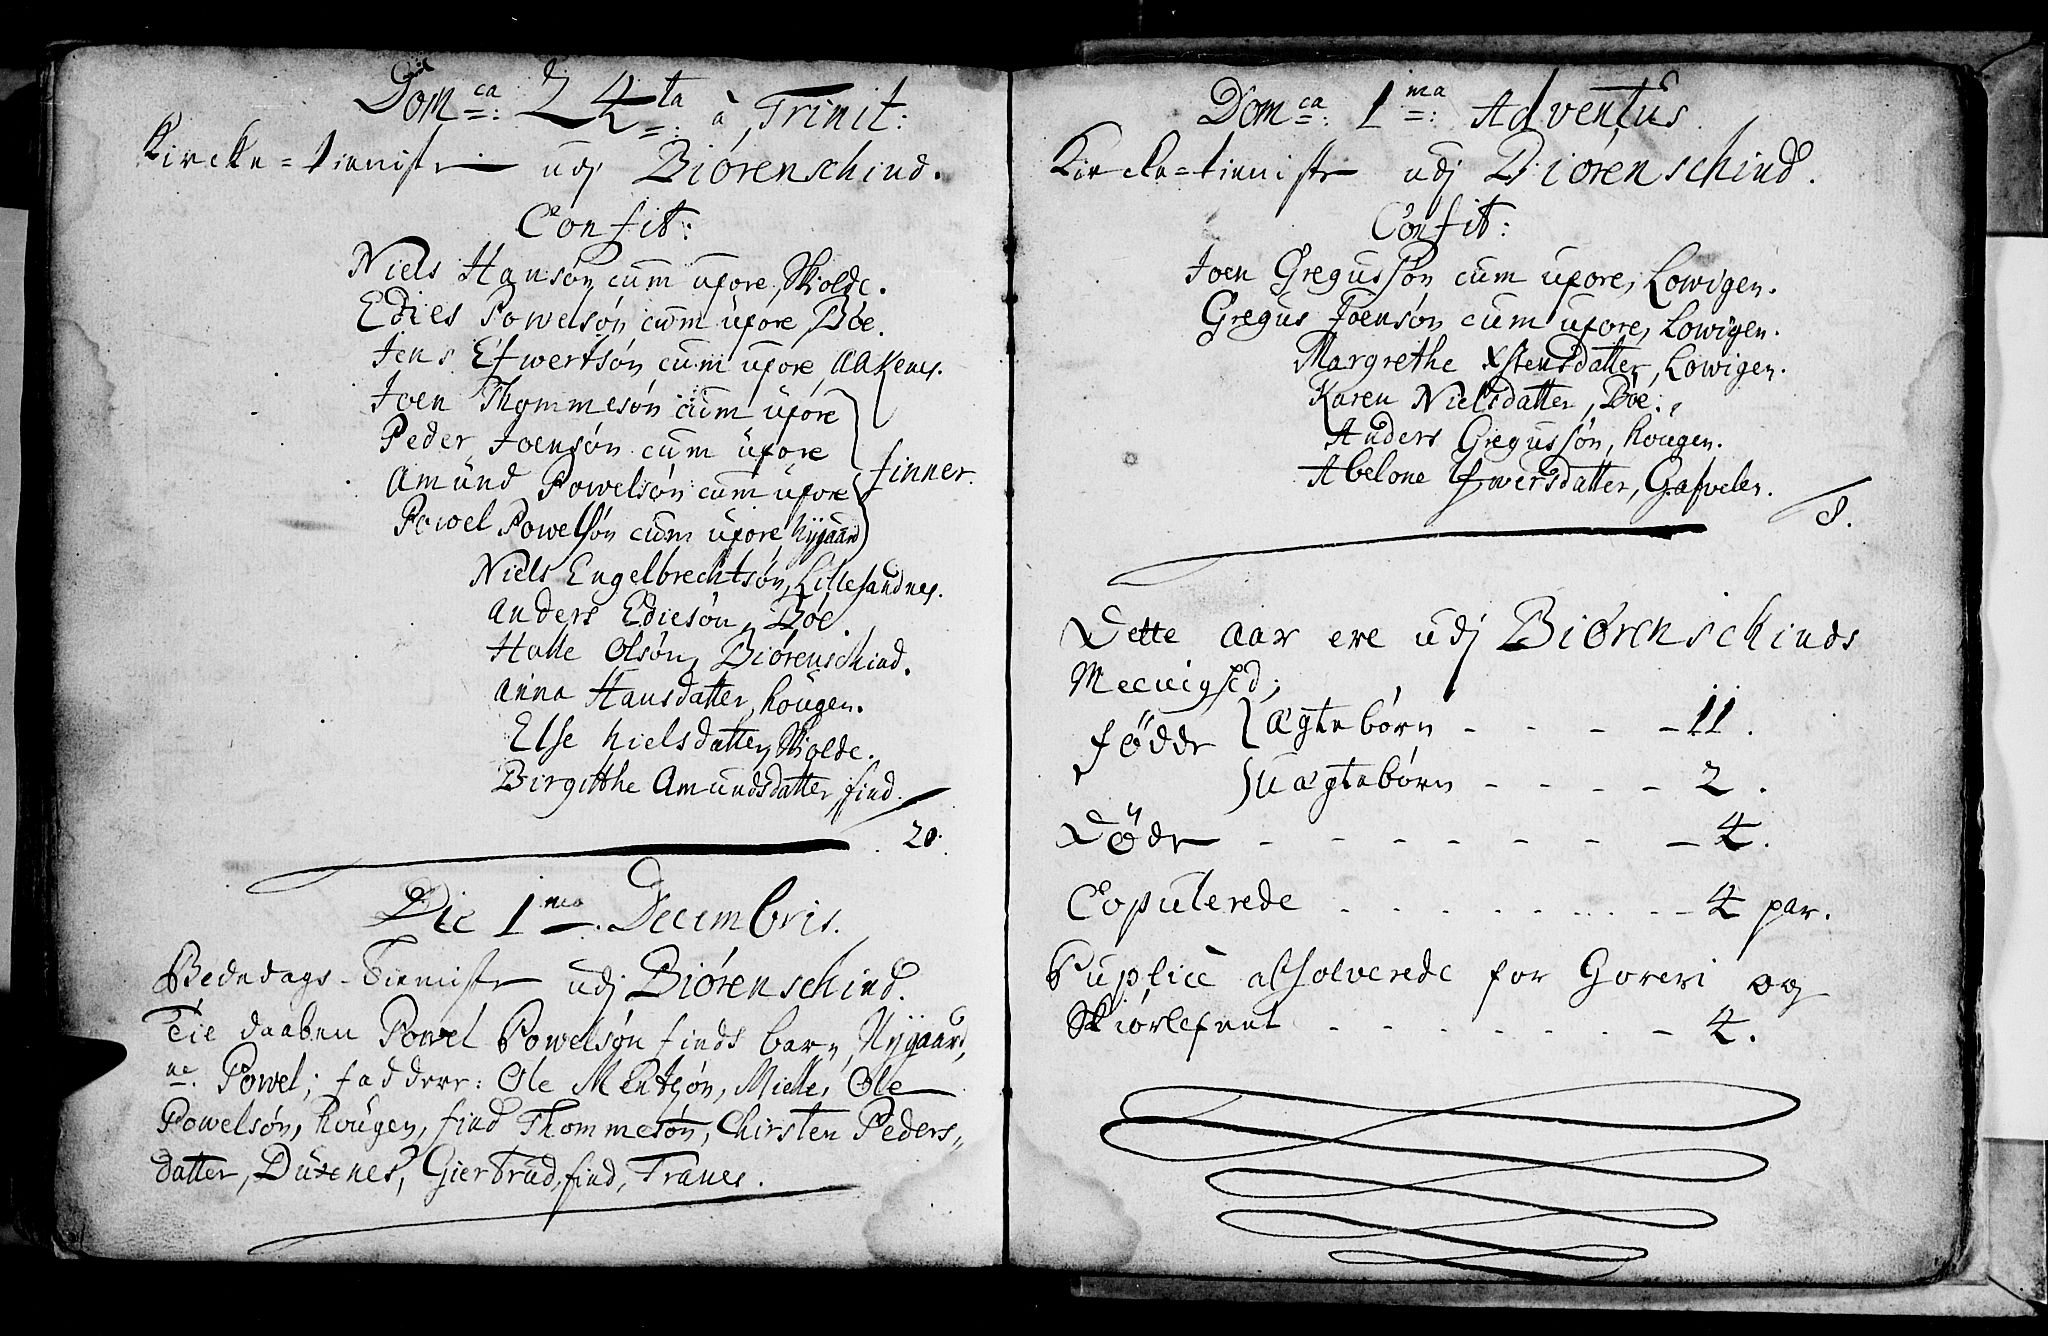 Dom ca: 24 ta à Trinit:
Kircke-tieniste udj Biørenschind.
Confit:
Niels Hansøn cum uxore, Skiolde.
Edies Powelsøn cum uxore, Bøe.
Jens Efwertsøn cum uxore, Aakenes.
Joen Thommesøn cum uxore
Peder Joensøn cum uxore
Amund Powelsøn cum uxore
finner.
Powel Powelsøn cum uxore Nygaard
Niels Engelbrechtsøn, Lillesandnes.
Anders Ediesøn, Bøe.
Halle Olsøn, Biørenschind.
Anna Hansdatter, Hougen.
Else Nielsdatter, Skiolde.
Birgitthe Amundsdatter, find.
20.
Die 1 ma. Decembris.
Bededags-Tieniste udj Biørenschind.
Tie daaben Powel Powelsøn finds barn, Nygaard,
ne. Powel; faddere: Ole Mentzøn, Mielle, Ole
Powelsøn, Hougen, find Thommesøn, Chirsten Peders-
datter, Duxenes, Giertrud, find, Tranes.
Dom ca: 1 ma: Adventus
Kircke-tieniste udj Biørenschind.
Confit:
Joen Gregussøn cum uxore, Lowigen.
Gregus Joensøn cum uxore, Lowigen.
Margrethe Xstensdatter, Lowigen.
Karen Nielsdatter, Bøe.
Anders Gregussøn, Hougen.
Abelone Efwersdatter, Gafvelen.
8.
Dette aar ere udj Biørenschinds
Meenighed;
fødde { ægtebørn - - - - 11.
uægtebørn - - - - 2.
Døde - - - - - - - - 4.
Copulerede - - - - - - - - 4 par.
Puplicè absolverede for Horeri og
Skiørlefnet - - - - - - - 4.